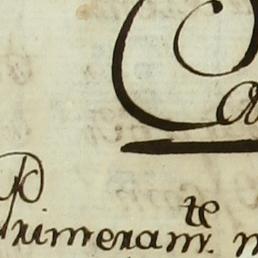 Ca
Primeram.te